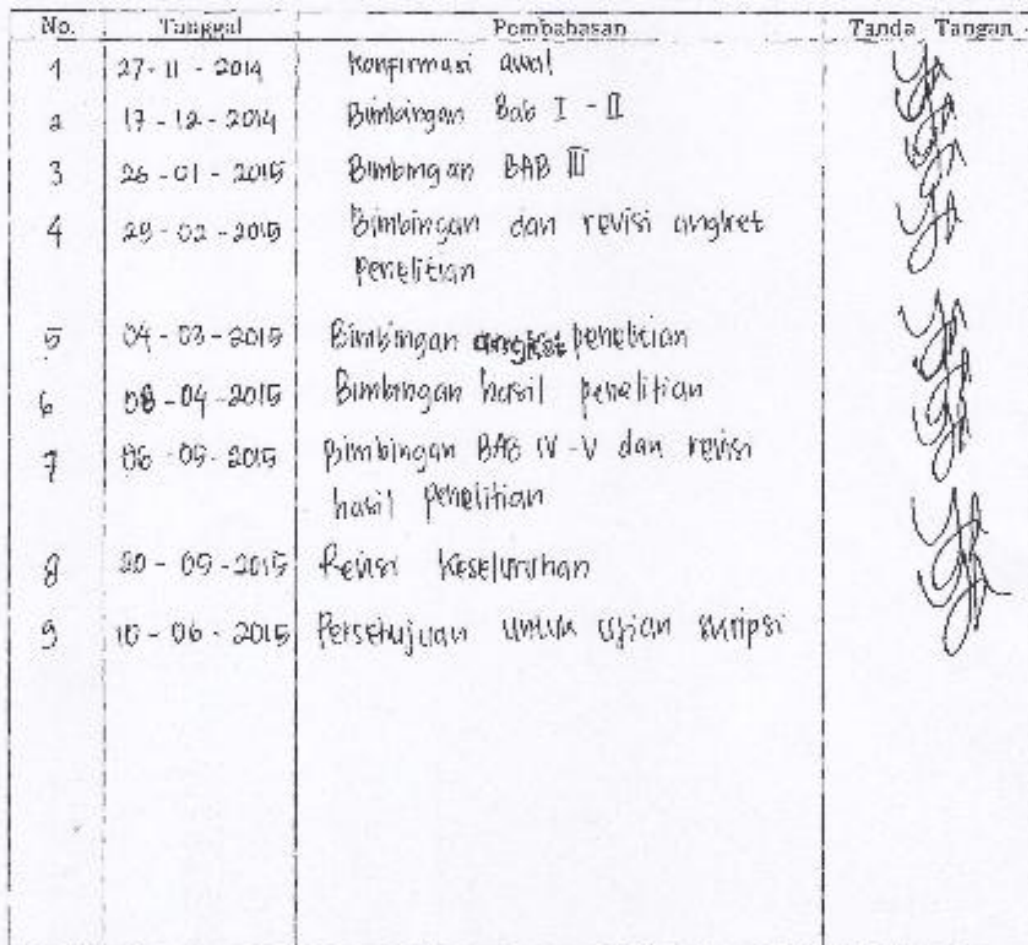 No. Tanggal Pembahasan Tanda Tangan
1 27-11-2014 Konfirmasi awal
2 17-12-2014 Bimbingan Bab I - II
3 26-01-2015 Bimbingan BAB III
4 25-02-2015 Bimbingan dan revisi angket
Penelitian
5 04-03-2015 Bimbingan angket penelitian
6 08-04-2015 Bimbingan hasil penelitian
7 06-05-2015 Bimbingan BAB IV - V dan revisi
hasil penelitian
8 20-05-2015 Revisi Keseluruhan
9 10-06-2015 Persetujuan untuk ujian skripsi